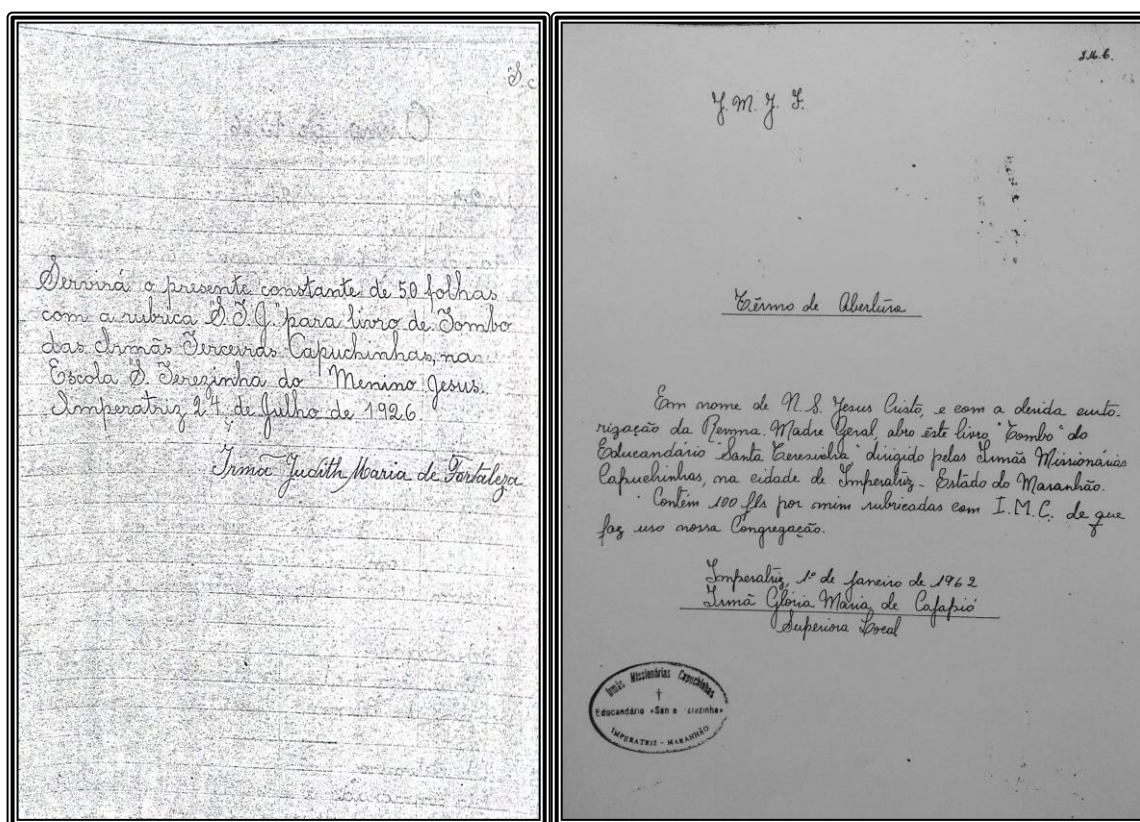 Servirá o presente constante de 50 folhas
com a rubrica "S.T.J." para livro de Tombo
das Irmãs Terceiras Capuchinhas, na
Escola S. Terezinha do Menino Jesus.
Imperatriz 24 de Julho de 1926
Irmã Judith Maria de Fortaleza
I.M.C.
J. M. J. F.
Têrmo de Abertura
Em nome de N. S. Jesus Cristo, e com a devida auto-
rização da Revma. Madre Geral, abro êste livro "Tombo" do
Educandário "Santa Teresinha" dirigido pelas Irmãs Missionárias
Capuchinhas, na cidade de Imperatriz - Estado do Maranhão.
Contém 100 fls por mim rubricadas com I.M.C. de que
faz uso nossa Congregação.
Imperatriz, 1º de janeiro de 1962
Irmã Glória Maria de Cajapió
Superiora Local
Irmãs Missionárias Capuchinhas
Educandário «San a erezinha»
IMPERATRIZ - MARANHÃO